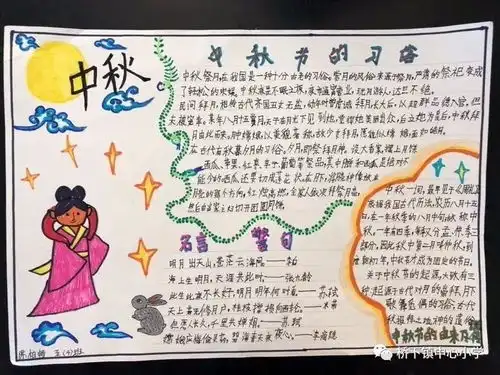 中秋
中秋节的习俗
中秋祭月,在我国是一种十分古老的习俗。赏月的风俗来源于祭月,严肃的祭祀变成
了轻松的欢娱。
民间拜月,相传古代齐国丑女无盐,幼年时曾虔诚拜月,长大后,以超群品德入宫,但
未被宠幸。某年八月十五赏月,天子在月光下见到她,觉得她美丽出众,后立她为皇后,中秋拜
月由此而来。
在古代有秋暮夕月的习俗。夕月,即祭拜月神。设大香案,摆上月饼
西瓜、苹果、红枣、李子、葡萄等祭品,其中月饼和西瓜是绝对不
能少的。西瓜还要切成莲花状。在月下,将月亮神像放在月
亮的那个方向,红烛高燃,全家人依次拜祭月亮,
然后由当家主妇切开团圆月饼
名言警句
明月出天山,苍茫云海间。——李白
海上生明月,天涯共此时。——张九龄
此生此夜不长好,明月明年何处看。——苏轼
但愿人长久,千里共婵娟。——苏轼
嫦娥应悔偷灵药,碧海青天夜夜心。——李商隐
中秋一词,最早见于《周礼》
根据我国古代历法,农历八月十五
日,在一年秋季的八月中旬,故称“中
秋”。一年有四季,每季又分孟、仲、季三
部分,因此秋中第二月叫仲秋,到
唐朝初年,中秋节才成为固定的节日。
关于中秋节的起源,大致有三
种:起源于古代对月的崇拜、月下
歌舞觅偶的习俗,古代
秋报拜土地神的遗俗
中秋节的由来
桥下镇中心小学